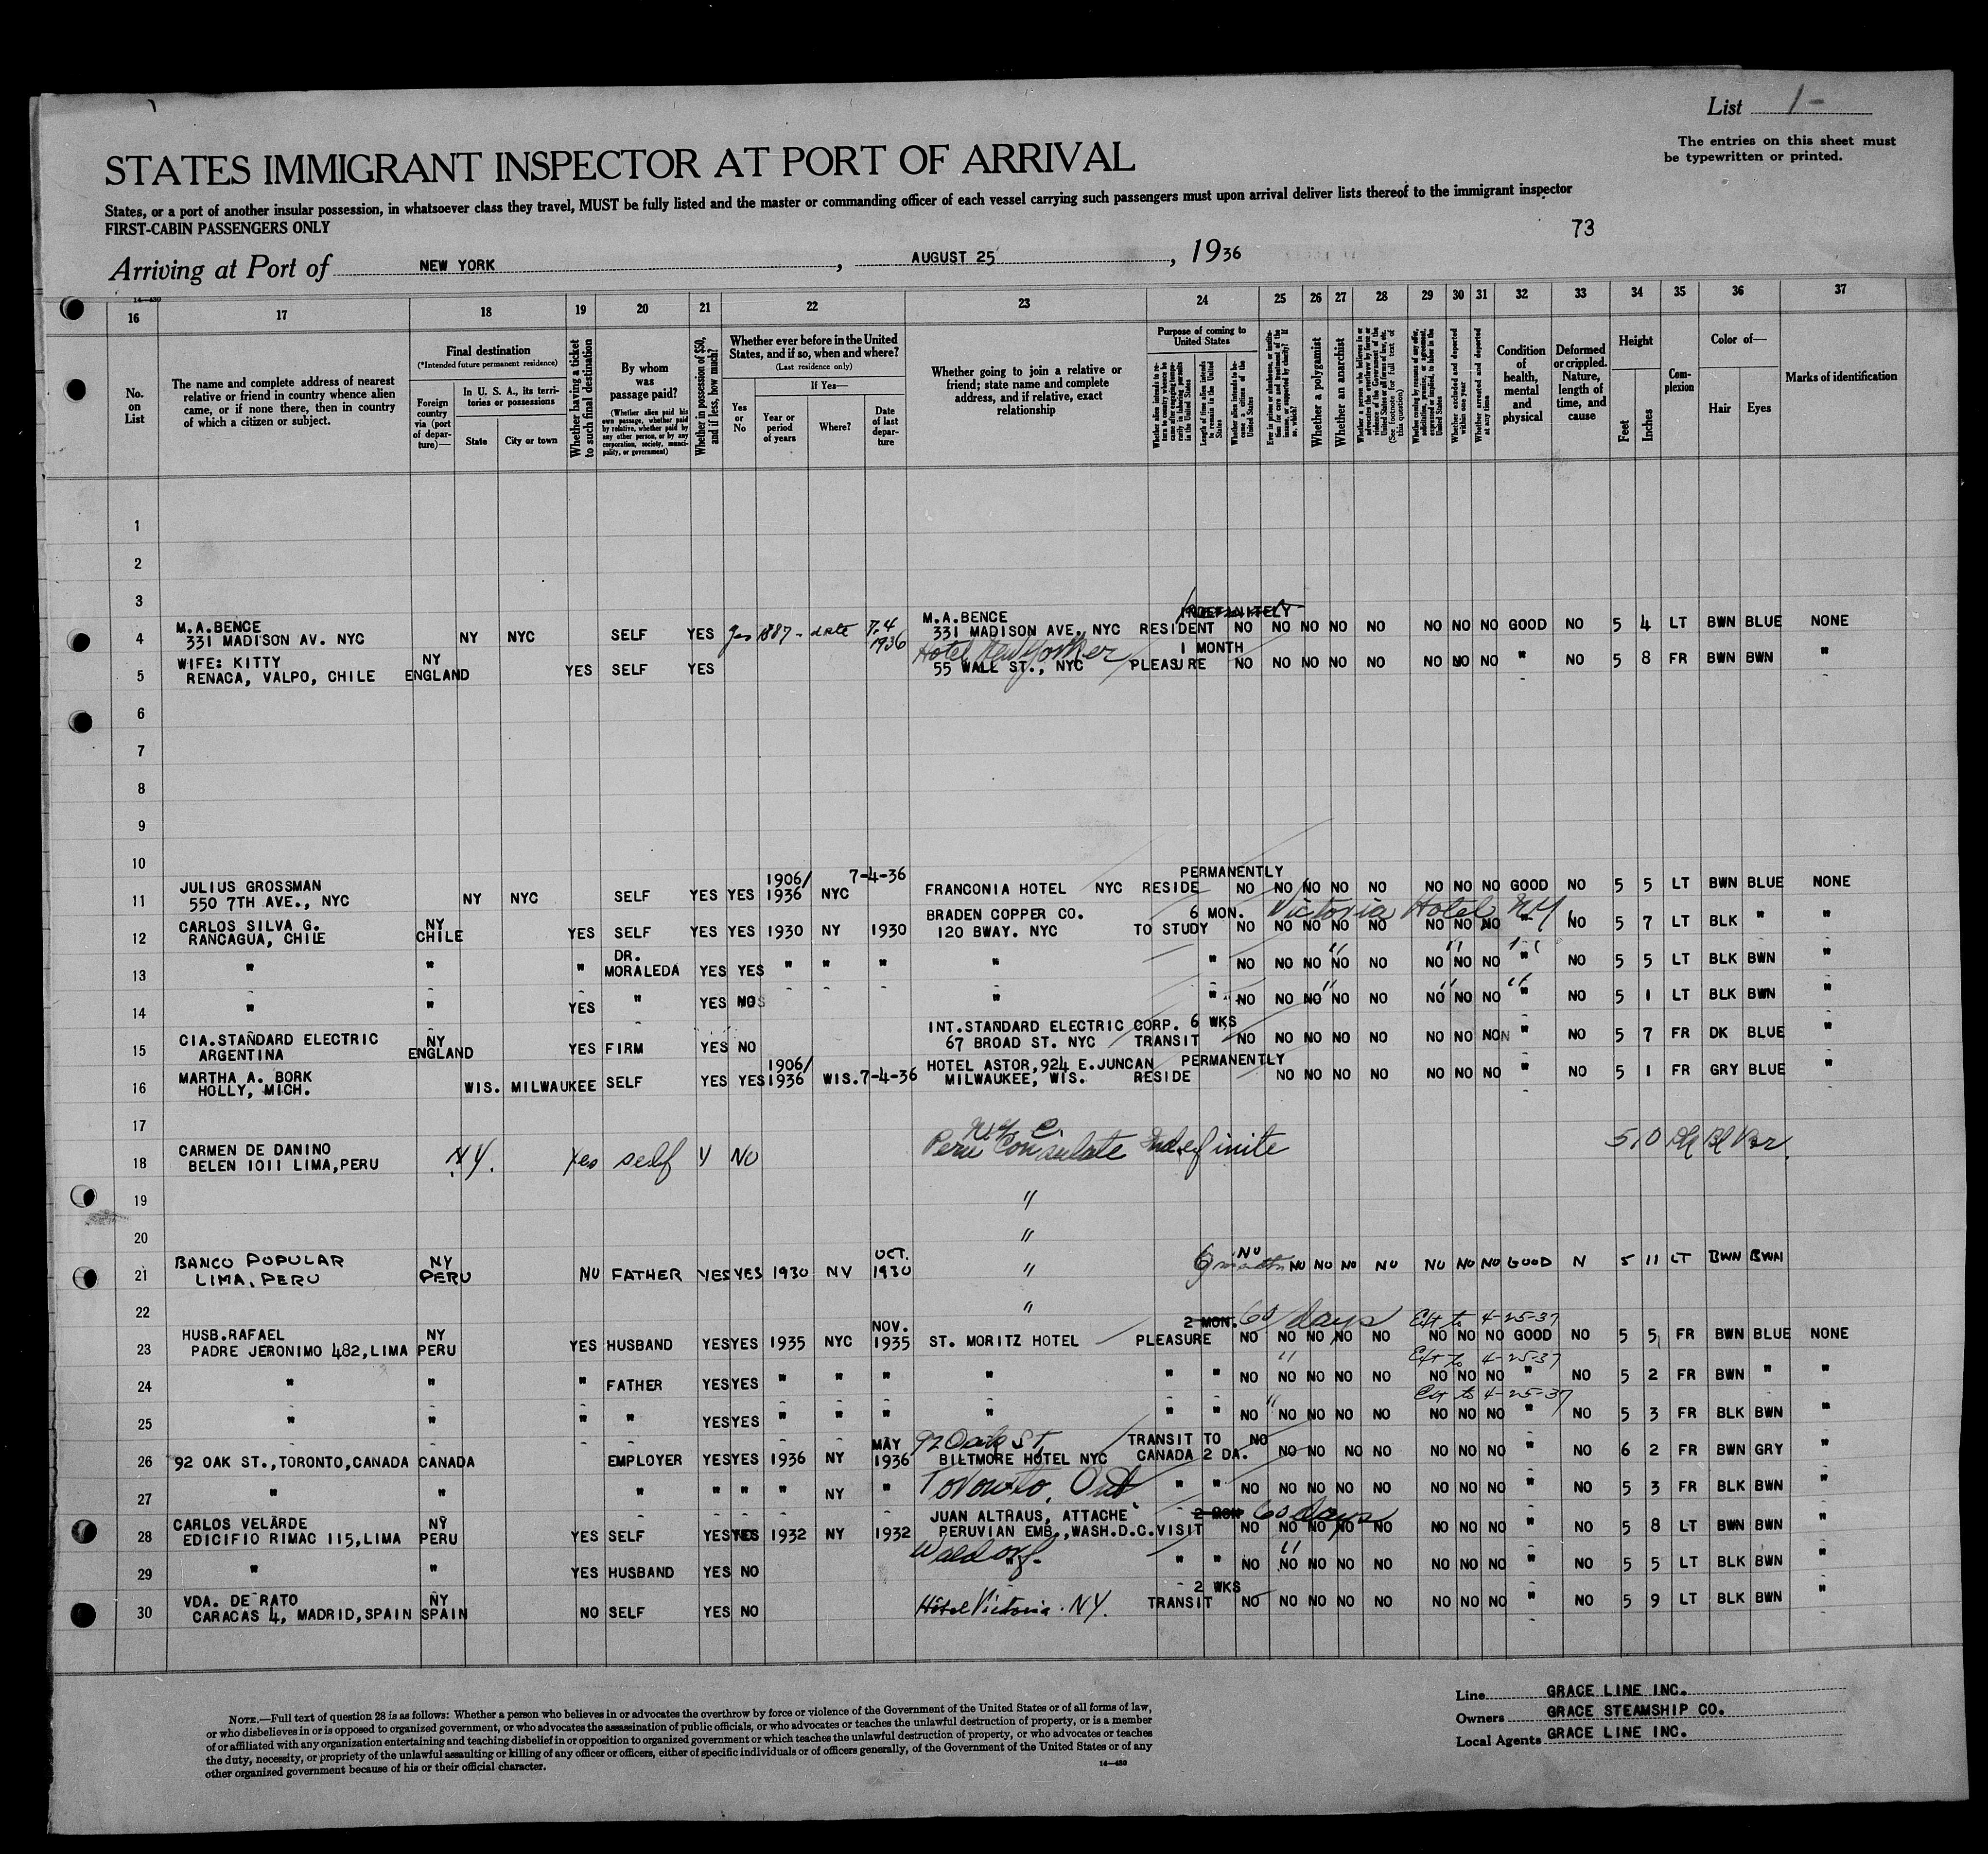 List 1-
The entries on this sheet must
be typewritten or printed.
STATES IMMIGRANT INSPECTOR AT PORT OF ARRIVAL
States, or a port of another insular possession, in whatsoever class they travel, MUST be fully listed and the master or commanding officer of each vessel carrying such passengers must upon arrival deliver lists thereof to the immigrant inspector
FIRST-CABIN PASSENGERS ONLY
73
Arriving at Port of NEW YORK , AUGUST 25 , 1936
14-430
16 17 18 19 20 21 22 23 24 25 26 27 28 29 30 31 32 33 34 35 36 37
No. on List
The name and complete address of nearest relative or friend in country whence alien came, or if none there, then in country of which a citizen or subject.
Final destination
(*Intended future permanent residence)
Foreign country via (port of departure)—
In U. S. A., its territories or possessions
State
City or town
Whether having a ticket to such final destination
By whom was passage paid?
(Whether alien paid his own passage, whether paid by relative, whether paid by any other person, or by any corporation, society, municipality, or government)
Whether in possession of $50, and if less, how much?
Whether ever before in the United States, and if so, when and where?
(Last residence only)
Yes or No
If Yes—
Year or period of years
Where?
Date of last departure
Whether going to join a relative or friend; state name and complete address, and if relative, exact relationship
Purpose of coming to United States
Whether alien intends to return to country whence he came after engaging temporarily in laboring pursuits in the United States
Length of time alien intends to remain in the United States
Whether alien intends to become a citizen of the United States
Ever in prison or almshouse, or institution for care and treatment of the insane, or supported by charity? If so, which?
Whether a polygamist
Whether an anarchist
Whether a person who believes in or advocates the overthrow by force or violence of the Government of the United States or all forms of law, etc. (See footnote for full text of this question)
Whether coming by reason of any offer, solicitation, promise, or agreement, expressed or implied, to labor in the United States
Whether excluded and deported within one year
Whether arrested and deported at any time
Condition of health, mental and physical
Deformed or crippled. Nature, length of time, and cause
Height
Feet
Inches
Complexion
Color of—
Hair
Eyes
Marks of identification
1
2
3
INDEFINITELY
4 M.A.BENCE 331 MADISON AV. NYC NY NYC SELF YES Yes 1887 - date 7.4 1936 M.A.BENCE 331 MADISON AVE., NYC RESIDENT NO NO NO NO NO NO NO NO GOOD NO 5 4 LT BWN BLUE NONE
5 WIFE: KITTY RENACA, VALPO, CHILE NY ENGLAND YES SELF YES Hotel New Yorker 55 WALL ST., NYC 1 MONTH PLEASURE NO NO NO NO NO NO NO NO " NO 5 8 FR BWN BWN "
6
7
8
9
10
11 JULIUS GROSSMAN 550 7TH AVE., NYC NY NYC SELF YES YES 1906/ 1936 NYC 7-4-36 FRANCONIA HOTEL NYC PERMANENTLY RESIDE NO NO NO NO NO NO NO NO GOOD NO 5 5 LT BWN BLUE NONE
Victoria Hotel N.Y.
12 CARLOS SILVA G. RANCAGUA, CHILE NY CHILE YES SELF YES YES 1930 NY 1930 BRADEN COPPER CO. 120 BWAY. NYC 6 MON. TO STUDY NO NO NO NO NO NO NO NO " NO 5 7 LT BLK " "
13 " " " DR. MORALEDA YES YES " " " " " NO NO NO NO NO NO NO NO " NO 5 5 LT BLK BWN "
14 " " YES " YES NO " " NO NO NO NO NO NO NO NO " NO 5 1 LT BLK BWN "
15 CIA.STANDARD ELECTRIC ARGENTINA NY ENGLAND YES FIRM YES NO INT.STANDARD ELECTRIC CORP. 67 BROAD ST. NYC 6 WKS TRANSIT NO NO NO NO NO NO NO NO " NO 5 7 FR DK BLUE "
16 MARTHA A. BORK HOLLY, MICH. WIS. MILWAUKEE SELF YES YES 1906/ 1936 WIS. 7-4-36 HOTEL ASTOR,924 E.JUNCAN MILWAUKEE, WIS. PERMANENTLY RESIDE NO NO NO NO NO NO NO " NO 5 1 FR GRY BLUE "
17
18 CARMEN DE DANINO BELEN 1011 LIMA,PERU N.Y. Yes self Y NO N.Y. C. Peru Consulate Indefinite 5 10 Dk Bl Br.
19 "
20 "
21 BANCO POPULAR LIMA, PERU NY PERU NO FATHER YES YES 1930 NY OCT. 1930 " 6 months NO NO NO NO NO NO NO NO GOOD N 5 11 LT BWN BWN
22 "
23 HUSB.RAFAEL PADRE JERONIMO 482,LIMA NY PERU YES HUSBAND YES YES 1935 NYC NOV. 1935 ST. MORITZ HOTEL 2 MON. 60 days PLEASURE NO NO NO NO NO Ext to 4-25-37 NO NO NO GOOD NO 5 5 FR BWN BLUE NONE
24 " " " FATHER YES YES " " " " " " NO NO NO NO NO Ext to 4-25-37 NO NO NO " NO 5 2 FR BWN " "
25 " " " " YES YES " " " " " " NO NO NO NO NO Ext to 4-25-37 NO NO NO " NO 5 3 FR BLK BWN "
26 92 OAK ST.,TORONTO,CANADA CANADA EMPLOYER YES YES 1936 NY MAY 1936 92 Oak St. BILTMORE HOTEL NYC TRANSIT TO CANADA 2 DA. NO NO NO NO NO NO NO NO " NO 6 2 FR BWN GRY "
27 " " " " " " NY " Toronto, Ont " " NO NO NO NO NO NO NO NO " NO 5 3 FR BLK BWN "
28 CARLOS VELARDE EDICIFIO RIMAC 115,LIMA NY PERU YES SELF YES YES 1932 NY 1932 JUAN ALTRAUS, ATTACHE PERUVIAN EMB.,WASH.D.C. 2 MON 60 days VISIT NO NO NO NO NO NO NO NO " NO 5 8 LT BWN BWN "
29 " " YES HUSBAND YES NO Waldorf. " " NO NO NO NO NO NO NO NO " NO 5 5 LT BLK BWN "
30 VDA. DE RATO CARACAS 4, MADRID,SPAIN NY SPAIN NO SELF YES NO Hotel Victoria. NY. 2 WKS TRANSIT NO NO NO NO NO NO NO NO " NO 5 9 LT BLK BWN "
NOTE.—Full text of question 28 is as follows: Whether a person who believes in or advocates the overthrow by force or violence of the Government of the United States or of all forms of law,
or who disbelieves in or is opposed to organized government, or who advocates the assassination of public officials, or who advocates or teaches the unlawful destruction of property, or is a member
of or affiliated with any organization entertaining and teaching disbelief in or opposition to organized government or which teaches the unlawful destruction of property, or who advocates or teaches
the duty, necessity, or propriety of the unlawful assaulting or killing of any officer or officers, either of specific individuals or of officers generally, of the Government of the United States or of any
other organized government because of his or their official character.
14-430
Line GRACE LINE INC.
Owners GRACE STEAMSHIP CO.
Local Agents GRACE LINE INC.